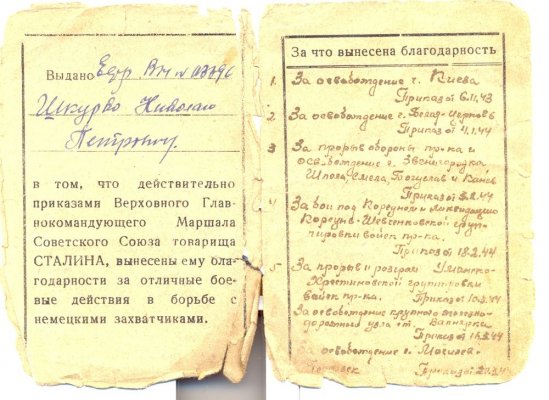 Выдано
Шкурко Николаю
Петровичу.
в том, что действительно
приказами Верховного Глав-
нокомандующего Маршала
Советского Союза товарища
СТАЛИНА, вынесены ему бла-
годарности за отличные бое-
вые действия в борьбе с
немецкими захватчиками.
За что вынесена благодарность
1. За освобождение г. Киева
Приказ от 6.11.43
2 За освобождение г. Белая-Церковь
Приказ от 4.1.44
3 За прорыв обороны пр-ка и
освобождение г. Звенигородка
Шпола, Смела, Богуслав и Канев
Приказ от 3.2.44
4 За бои под Корсунем и ликвидацию
Корсунь-Шевченковской груп-
пировки войск пр-ка.
Приказ от 18.2.44
5- За прорыв и разгром Уманско-
Христиновской группировки
войск пр-ка. Приказ от 10.3.44
За освобождение крупного железно-
дорожного узла ст. Вапнярка
Приказ от 16.3.44
За освобождение г. Могилев-
Приказ от